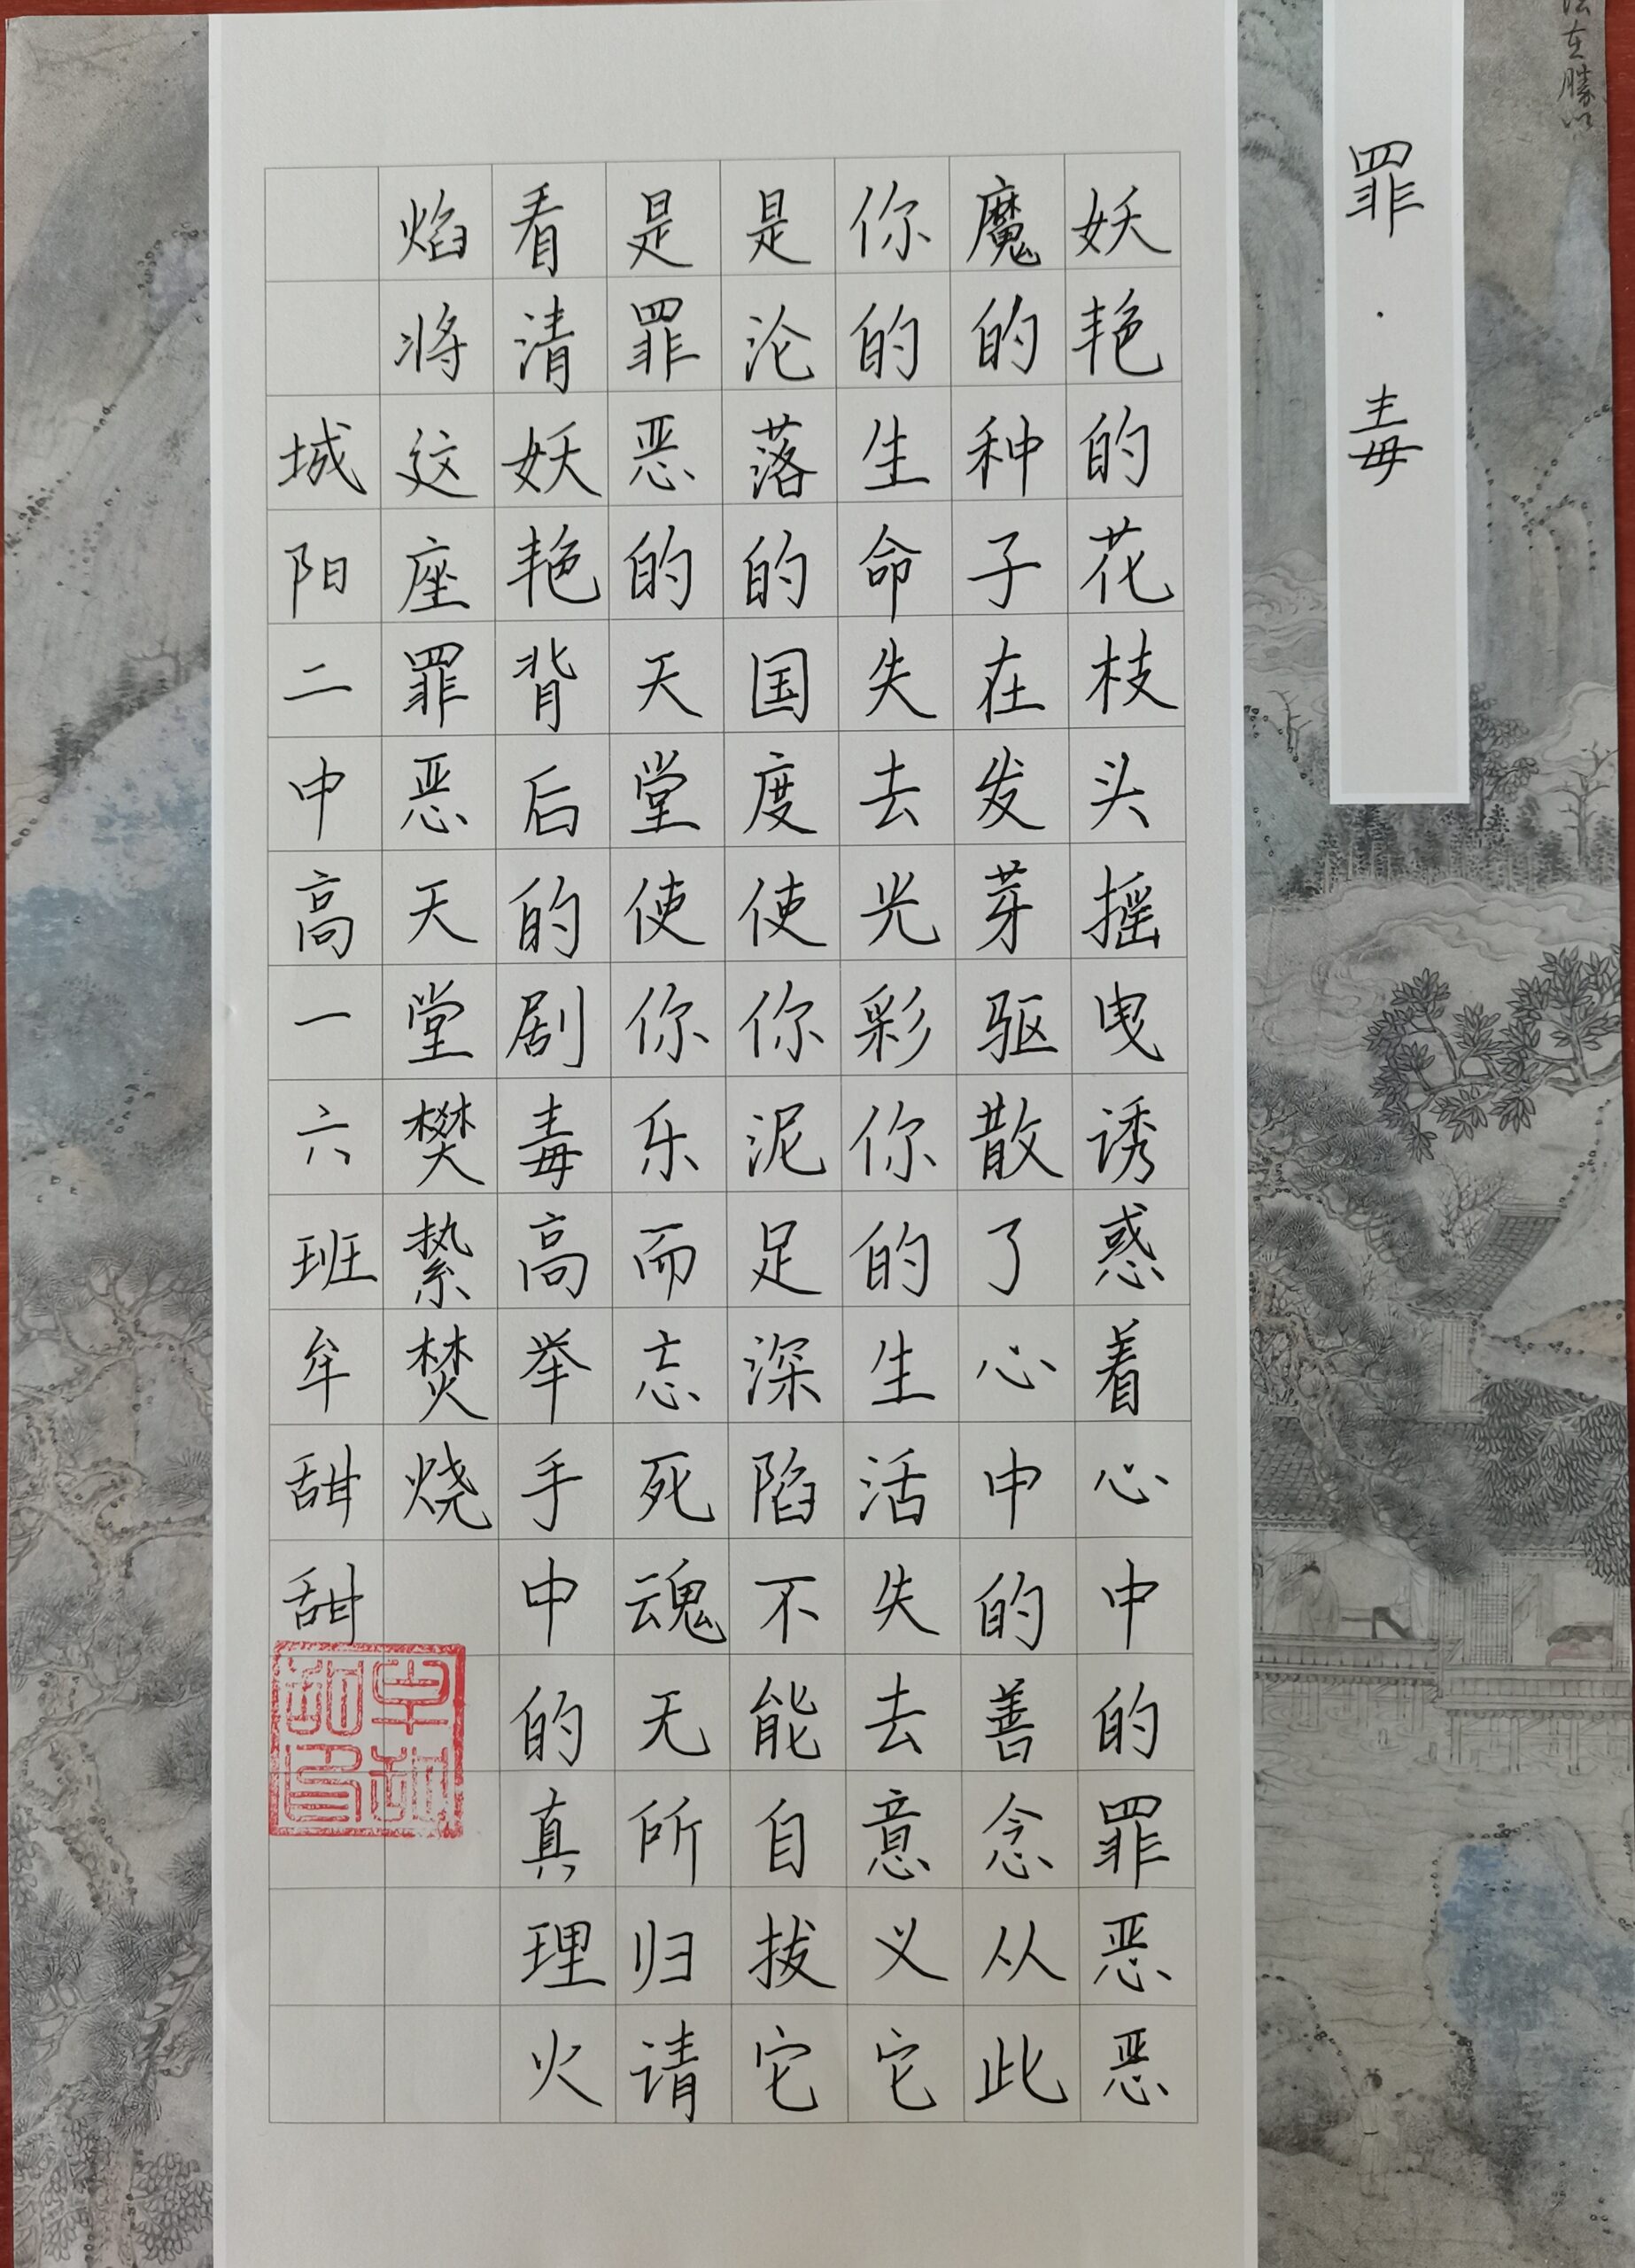 罪·毒
妖艳的花枝头摇曳诱惑着心中的罪恶恶
魔的种子在发芽驱散了心中的善念从此
你的生命失去光彩你的生活失去意义它
是沦落的国度使你泥足深陷不能自拔它
是罪恶的天堂使你乐而忘死魂无所归请
看清妖艳背后的剧毒高举手中的真理火
焰将这座罪恶天堂樊絷焚烧
城阳二中高一六班牟甜甜